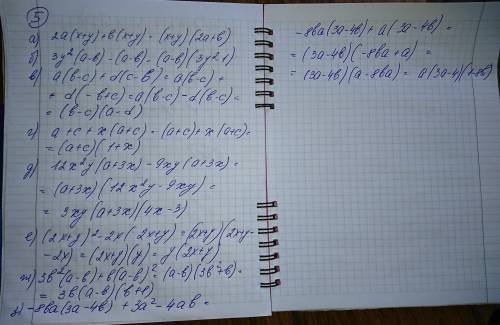 5
а) 2a(x+y)+b(x+y) = (x+y)(2a+b)
б) 3y²(a-b)-(a-b)=(a-b)(3y²+1)
в) a(b-c)+d(c-b)=a(b-c)+
+ d(-b+c)=a(b-c)-d(b-c)=
= (b-c)(a-d)
г) a+c+x(a+c) = (a+c)+x(a+c)=
=(a+c)(1+x)
д) 12x²y(a+3x)-9xy(a+3x)=
= (a+3x)(12x²y-9xy)=
= 3xy(a+3x)(4x-3)
е) (2x+y)²-2x(2x+y)=(2x+y)(2x+y-
-2x)=(2x+y)(y)=y(2x+y)
ж) 3b²(a-b)+b(a-b)=(a-b)(3b²+b)=
= 3b(a-b)(b+1)
з) -8ba(3a-4b)+3a²-4ab=
-8ba(3a-4b)+a(3a-4b)=
=(3a-4b)(-8ba+a)=
=(3a-4b)(a-8ba)= a(3a-4)(1-8b)